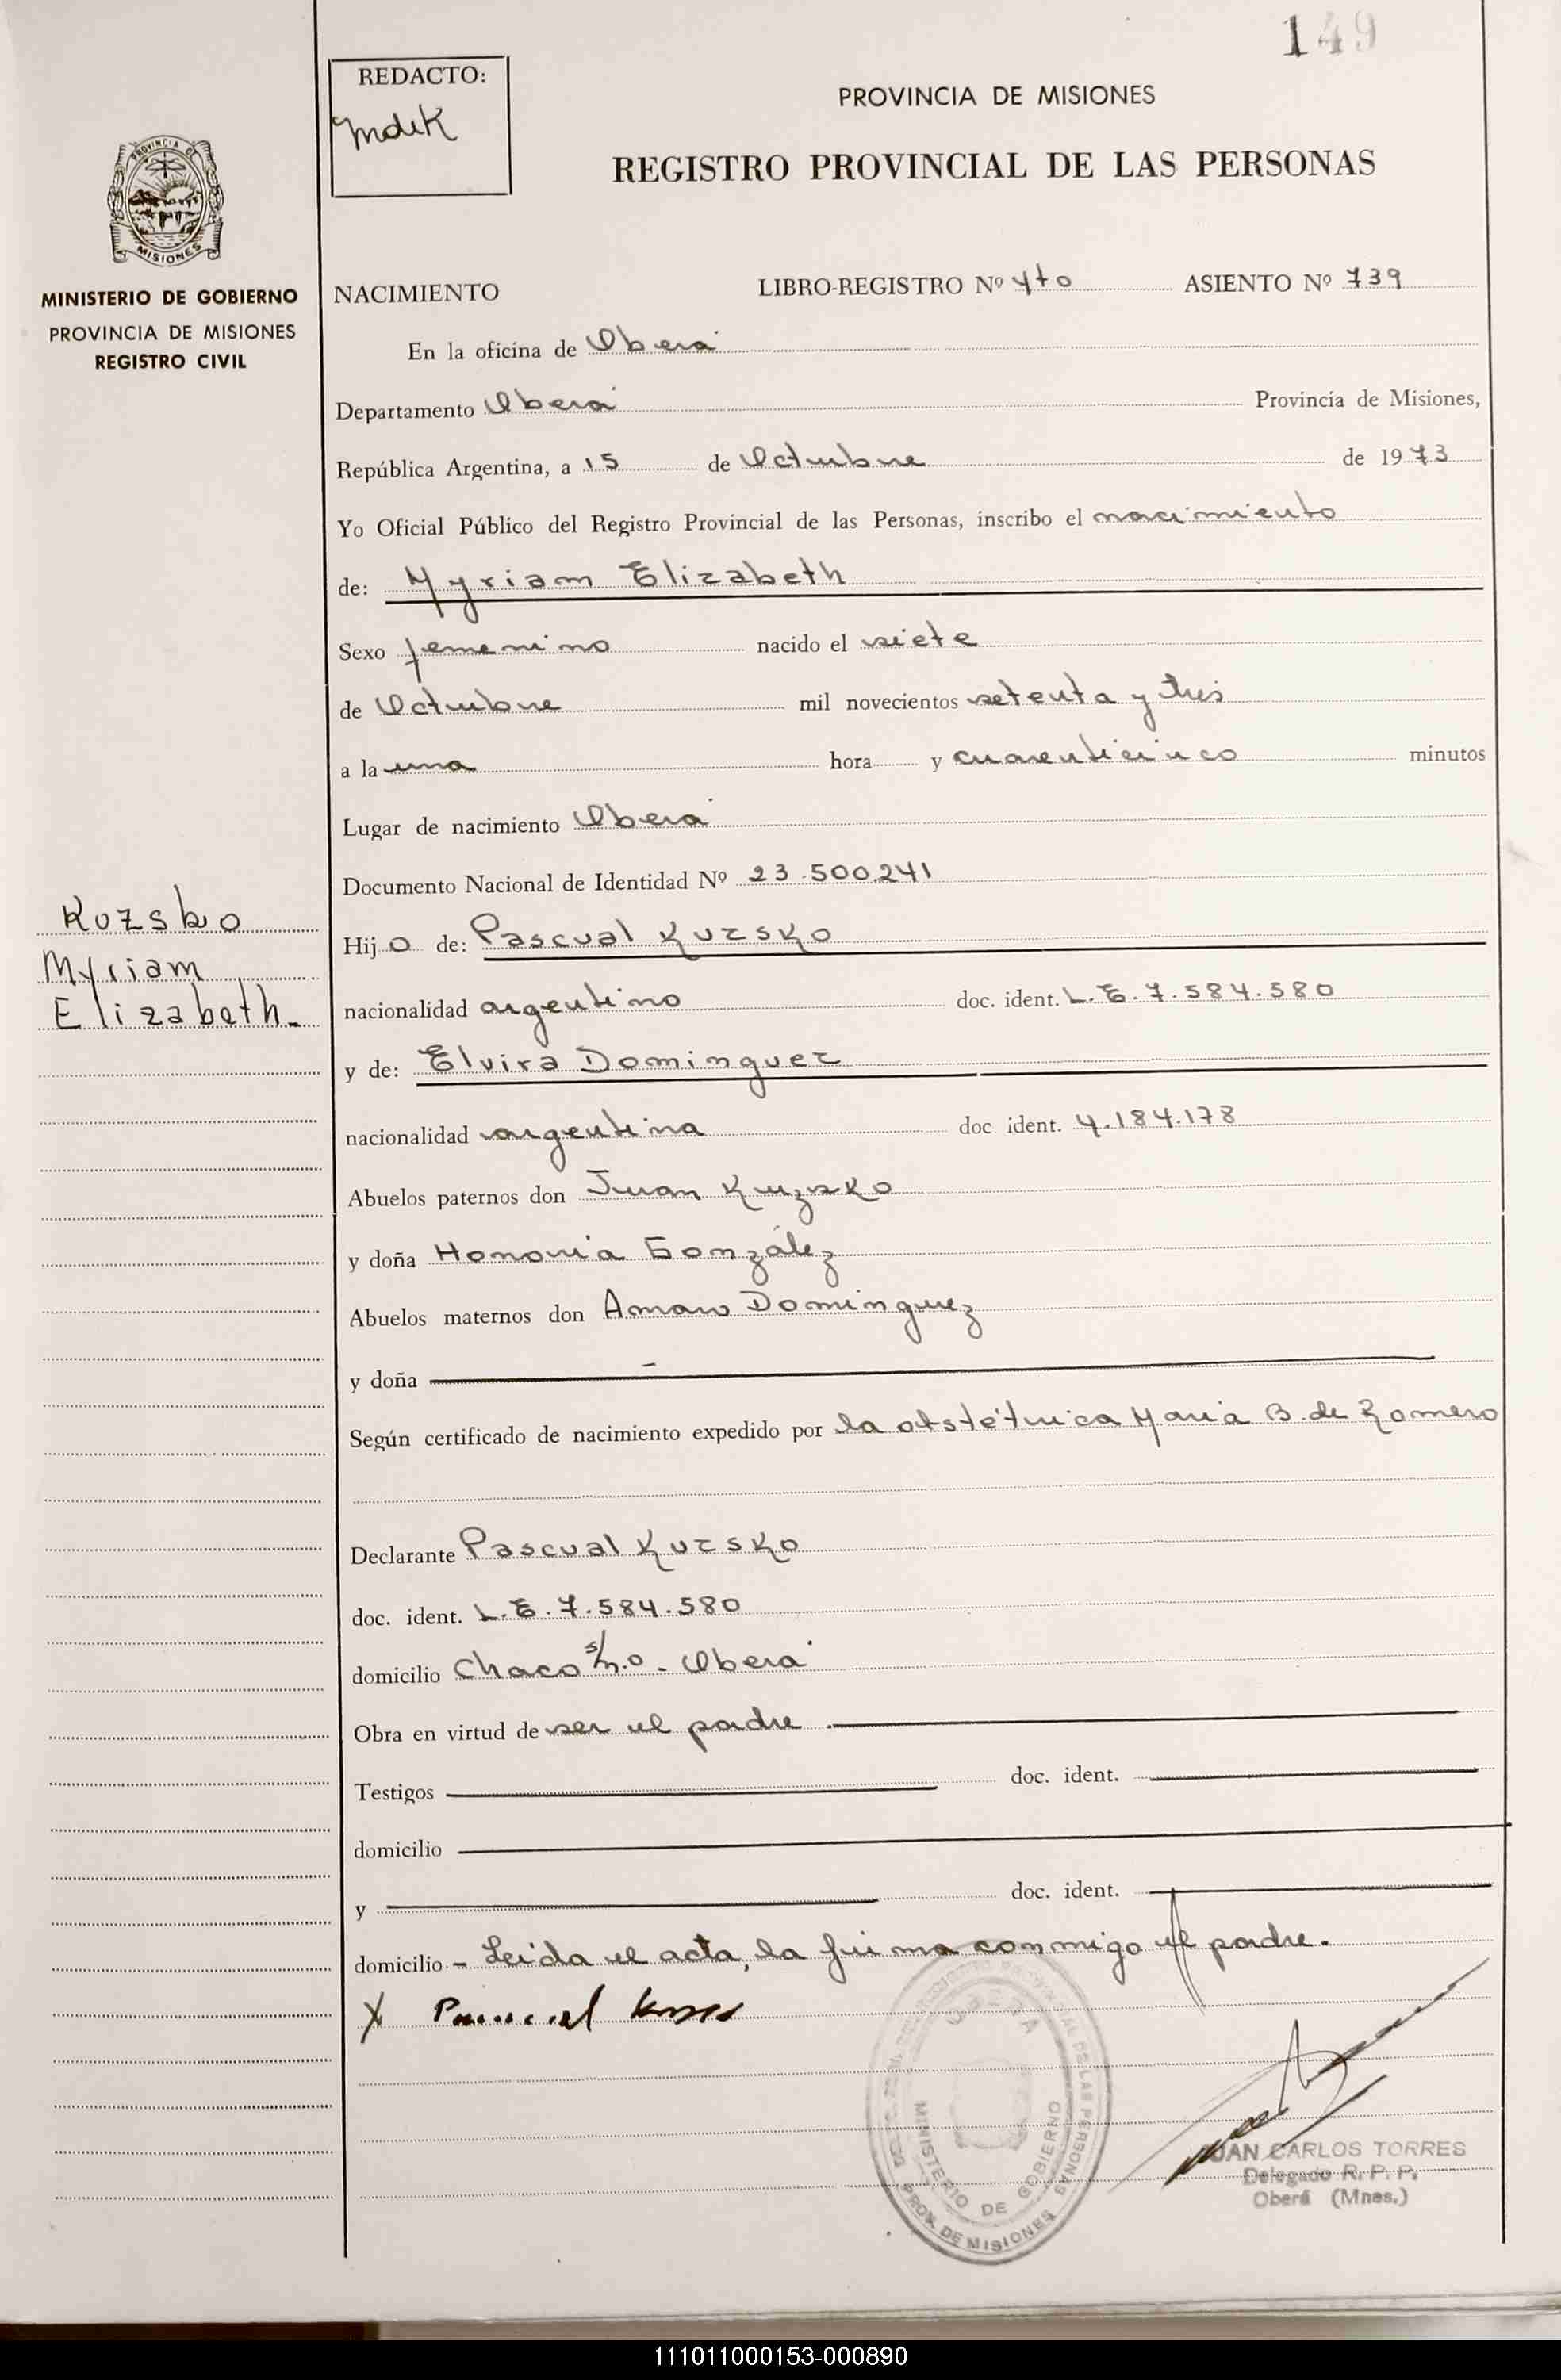 149
REDACTO:
mdeK
PROVINCIA DE MISIONES
REGISTRO PROVINCIAL DE LAS PERSONAS
PROVINCIA DE
MISIONES
MINISTERIO DE GOBIERNO
PROVINCIA DE MISIONES
REGISTRO CIVIL
NACIMIENTO LIBRO-REGISTRO Nº 4to ASIENTO Nº 739
En la oficina de Oberá
Departamento Oberá Provincia de Misiones,
República Argentina, a 15 de Octubre de 1973
Yo Oficial Público del Registro Provincial de las Personas, inscribo el nacimiento
de: Myriam Elizabeth
Sexo femenino nacido el siete
de Octubre mil novecientos setenta y tres
a la una hora y cuarenticinco minutos
Lugar de nacimiento Oberá
Documento Nacional de Identidad Nº 23.500.241
Kuzsko
Myriam
Elizabeth.
Hijo de: Pascual Kuzsko
nacionalidad argentino doc. ident. L.E. 7.584.580
y de: Elvira Dominguez
nacionalidad argentina doc ident. 4.184.178
Abuelos paternos don Juan Kuzsko
y doña Honoria González
Abuelos maternos don Amaro Dominguez
y doña
Según certificado de nacimiento expedido por la obstétrica María B. de Romero
Declarante Pascual Kuzsko
doc. ident. L.E. 7.584.580
domicilio Chaco s/n.o - Oberá
Obra en virtud de ser el padre.
Testigos doc. ident.
domicilio
y doc. ident.
domicilio - Leida el acta, la firma conmigo el padre.
X Pascual
OBERA
MINISTERIO DE GOBIERNO
PROV. DE MISIONES
JUAN CARLOS TORRES
Delegado R. P. P.
Oberá (Mnes.)
111011000153-000890